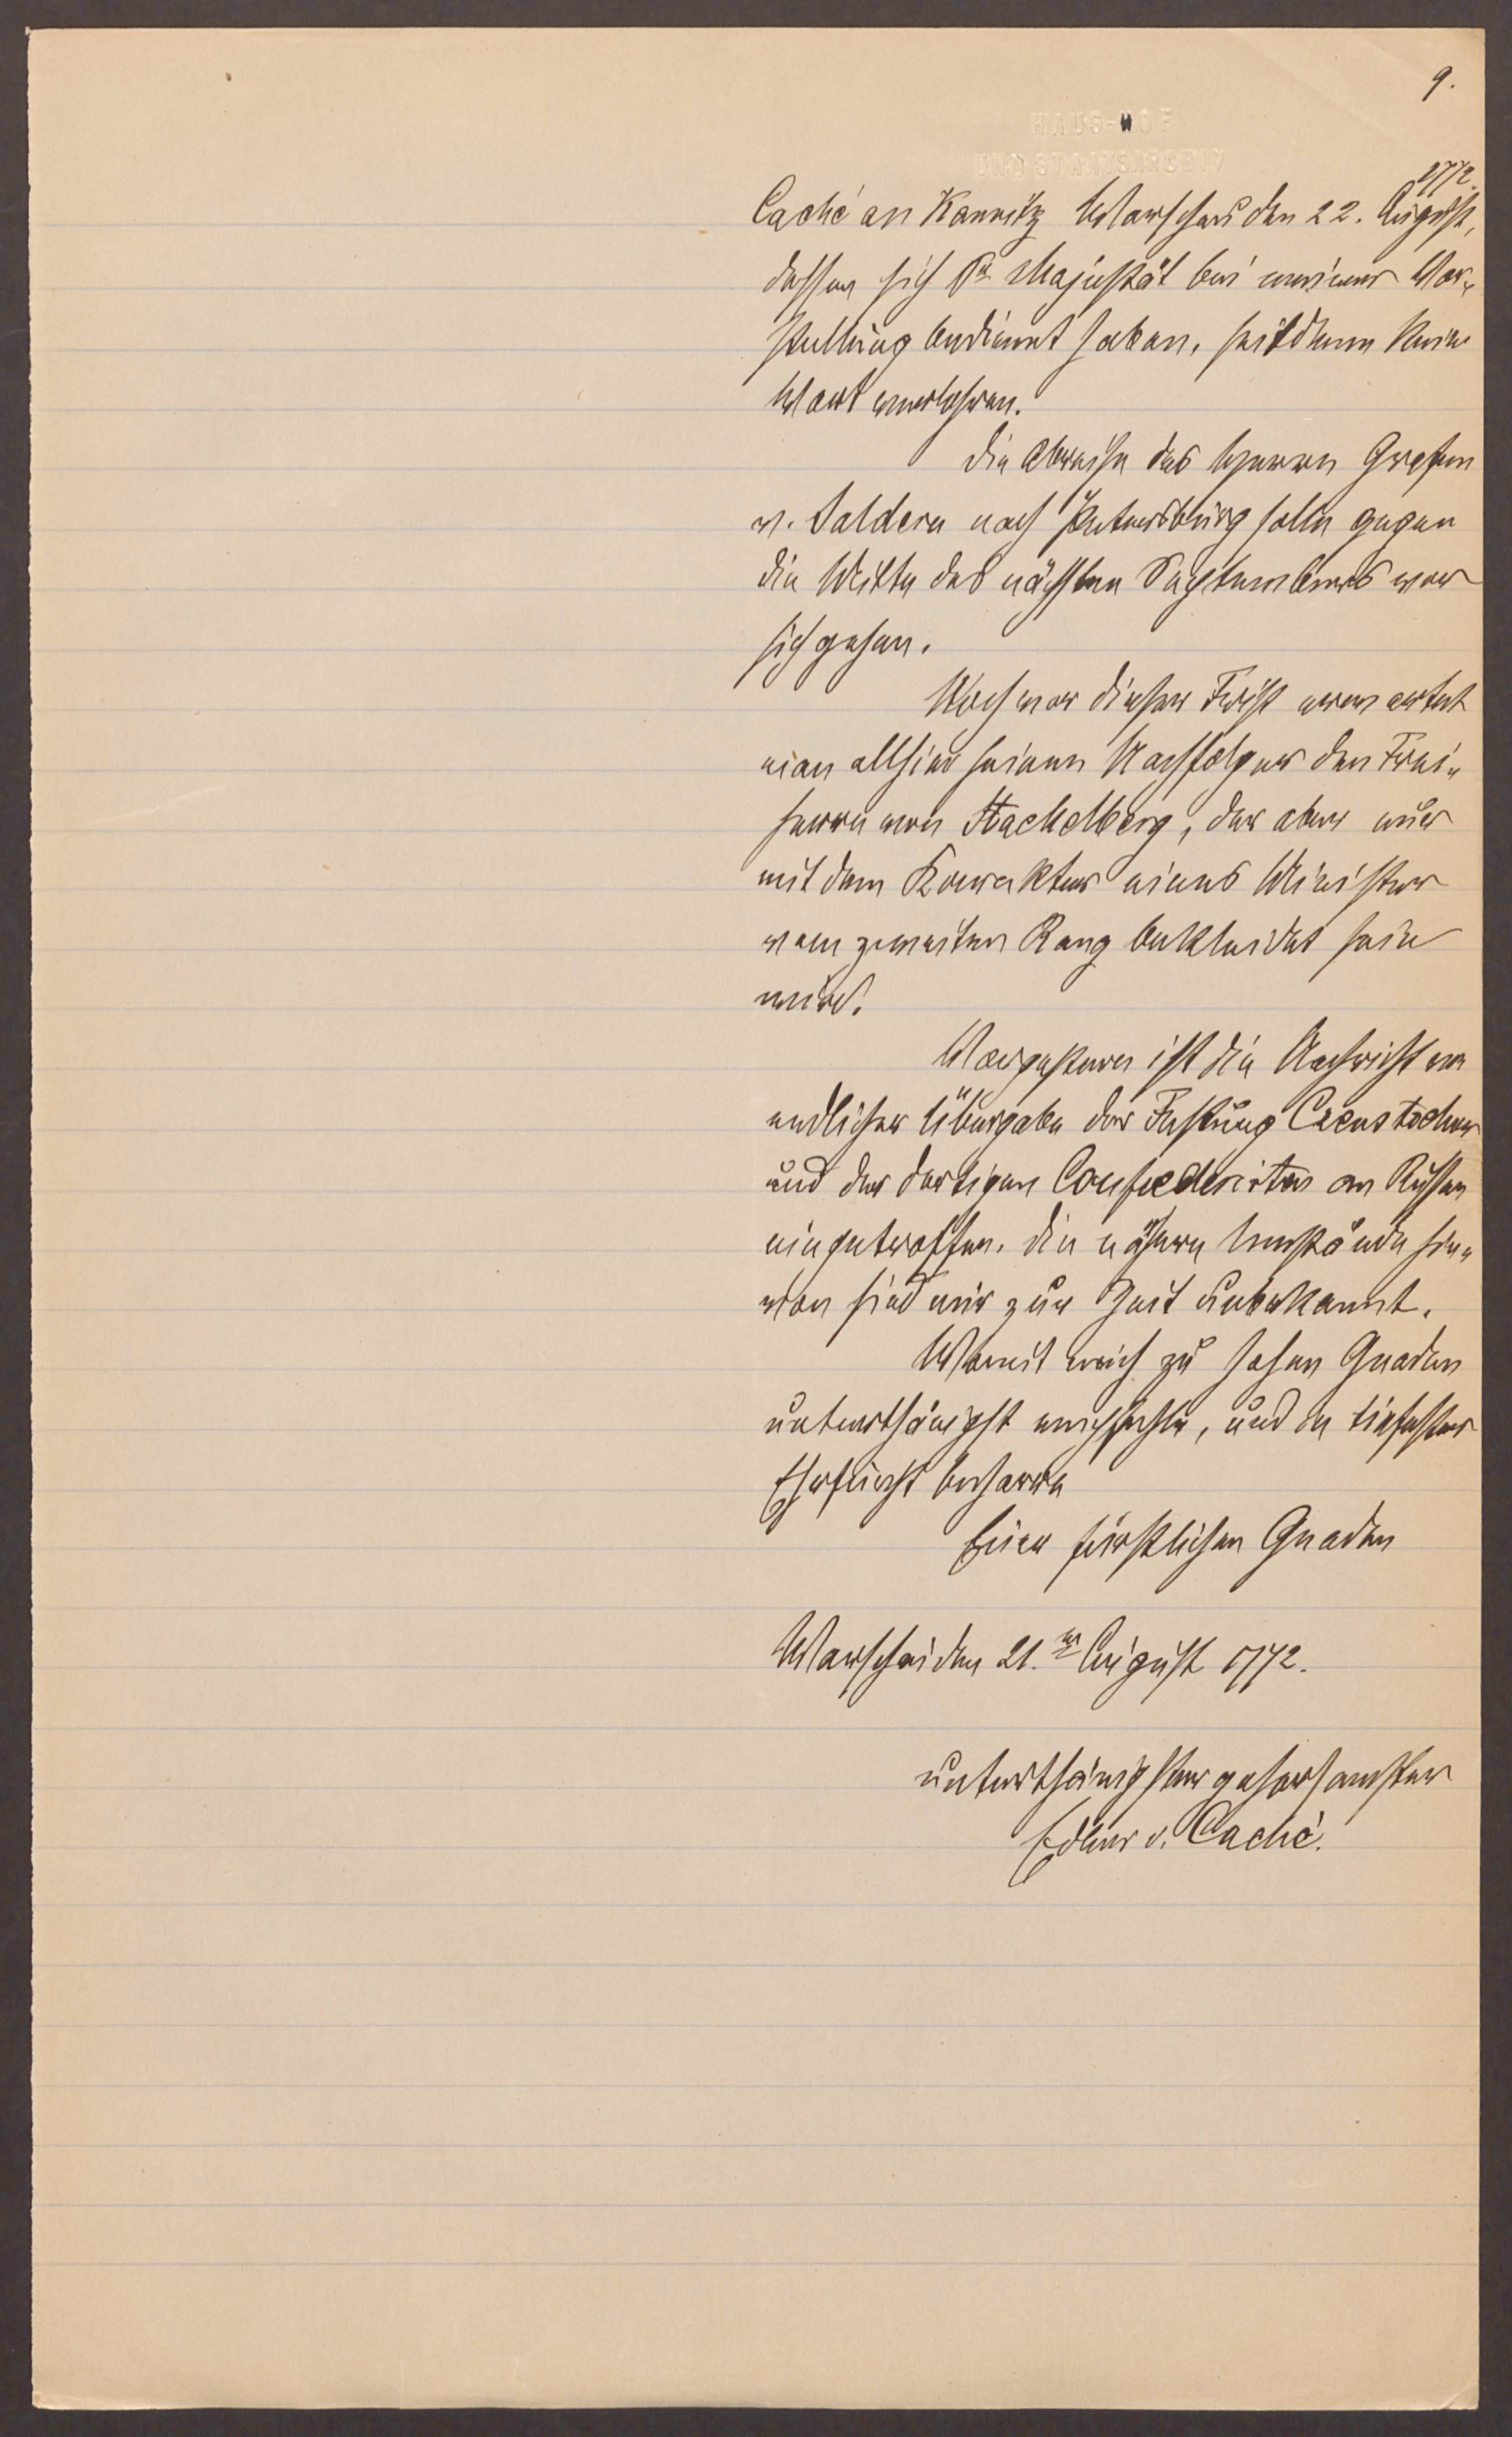 9.
HAUS-HOF
UND STAATSARCHIV
1772.
Caché an Kaunitz Warschau den 22. August,
dessen sich Sr Majestät bei meiner Vor-
stellung bedienet haben, seitdem kein
Wort verlohren.
Die Abreise des Herrn Grafen
v. Saldern nach Petersburg solle gegen
die Mitte des nächsten Septembers vor
sich gehen.
Noch vor dieser Frist erwartet
man allhier seinen Nachfolger den Frei-
herrn von Stackelberg, der aber nur
mit dem Karakter eines Minister
vom zweiten Rang bekleidet sein
wird.
Vorgestern ist die Nachricht von
endlicher Übergabe der Festung Czenstochow
und der dortigen Confoederirten an Russen
eingetroffen. Die nähern Umstände hie-
von sind mir zur Zeit unbekannt.
Womit mich zu hohen Gnaden
unterthänigst empfehle, und in tiefester
Ehrfurcht beharre
Euer fürstlichen Gnaden
Warschau den 21.ten August 1772.
unterthänigster gehorsamster
Edler v. Caché.